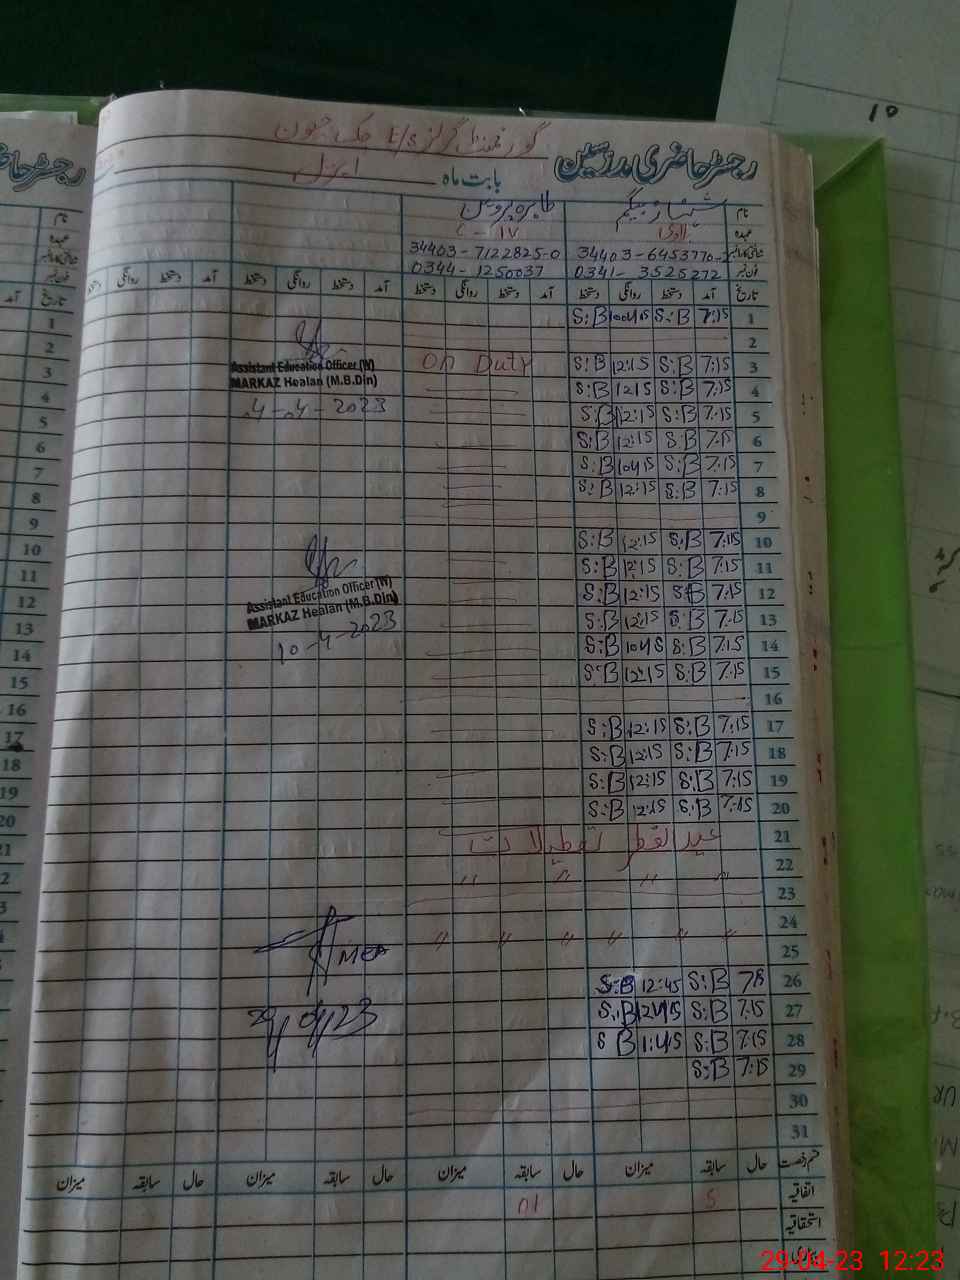 گورنمنٹ گرلز E/S چک جہون
رجسٹر حاضری مدرسین
بابت ماہ اپریل
نام شہناز بیگم طاہرہ پروین
عہدہ C-IV
34403-7122825-0
0341-3525272 0344-1250037
تاریخ آمد دستخط روانگی دستخط آمد دستخط روانگی دستخط آمد دستخط روانگی دستخط
1 7:15 S:B 10:45 S:B
2
3 7:15 S:B 12:15 S:B On Duty
4 7:15 S:B 12:15 S:B
5 7:15 S:B 12:15 S:B
6 7:15 S:B 12:15 S:B
7 7:15 S:B 10:45 S:B
8 7:15 S:B 12:15 S:B
9
10 7:15 S:B 12:15 S:B
11 7:15 S:B 12:15 S:B
12 7:15 S:B 12:15 S:B
13 7:15 S:B 12:15 S:B
14 7:15 S:B 10:45 S:B
15 7:15 S:B 12:15 S:B
16
17 7:15 S:B 12:15 S:B
18 7:15 S:B 12:15 S:B
19 7:15 S:B 12:15 S:B
20 7:15 S:B 12:15 S:B
21 عید الفطر تعطیلات
22 " " " "
23
24 " " " " " "
25
26 S:B 12:45 S:B
27 7:15 S:B 12:45 S:B
28 7:15 S:B 1:45 S B
29 7:15 S:B
30
31
Assistant Education Officer (W)
MARKAZ Healan (M.B.Din)
4-4-2023
Assistant Education Officer (W)
MARKAZ Healan (M.B.Din)
10-4-2023
MEA
29/04/23
قسم رخصت حال سابقہ میزان حال سابقہ میزان حال سابقہ میزان حال سابقہ میزان
اتفاقیہ 5 01
استحقاقیہ
29-04-23 12:23